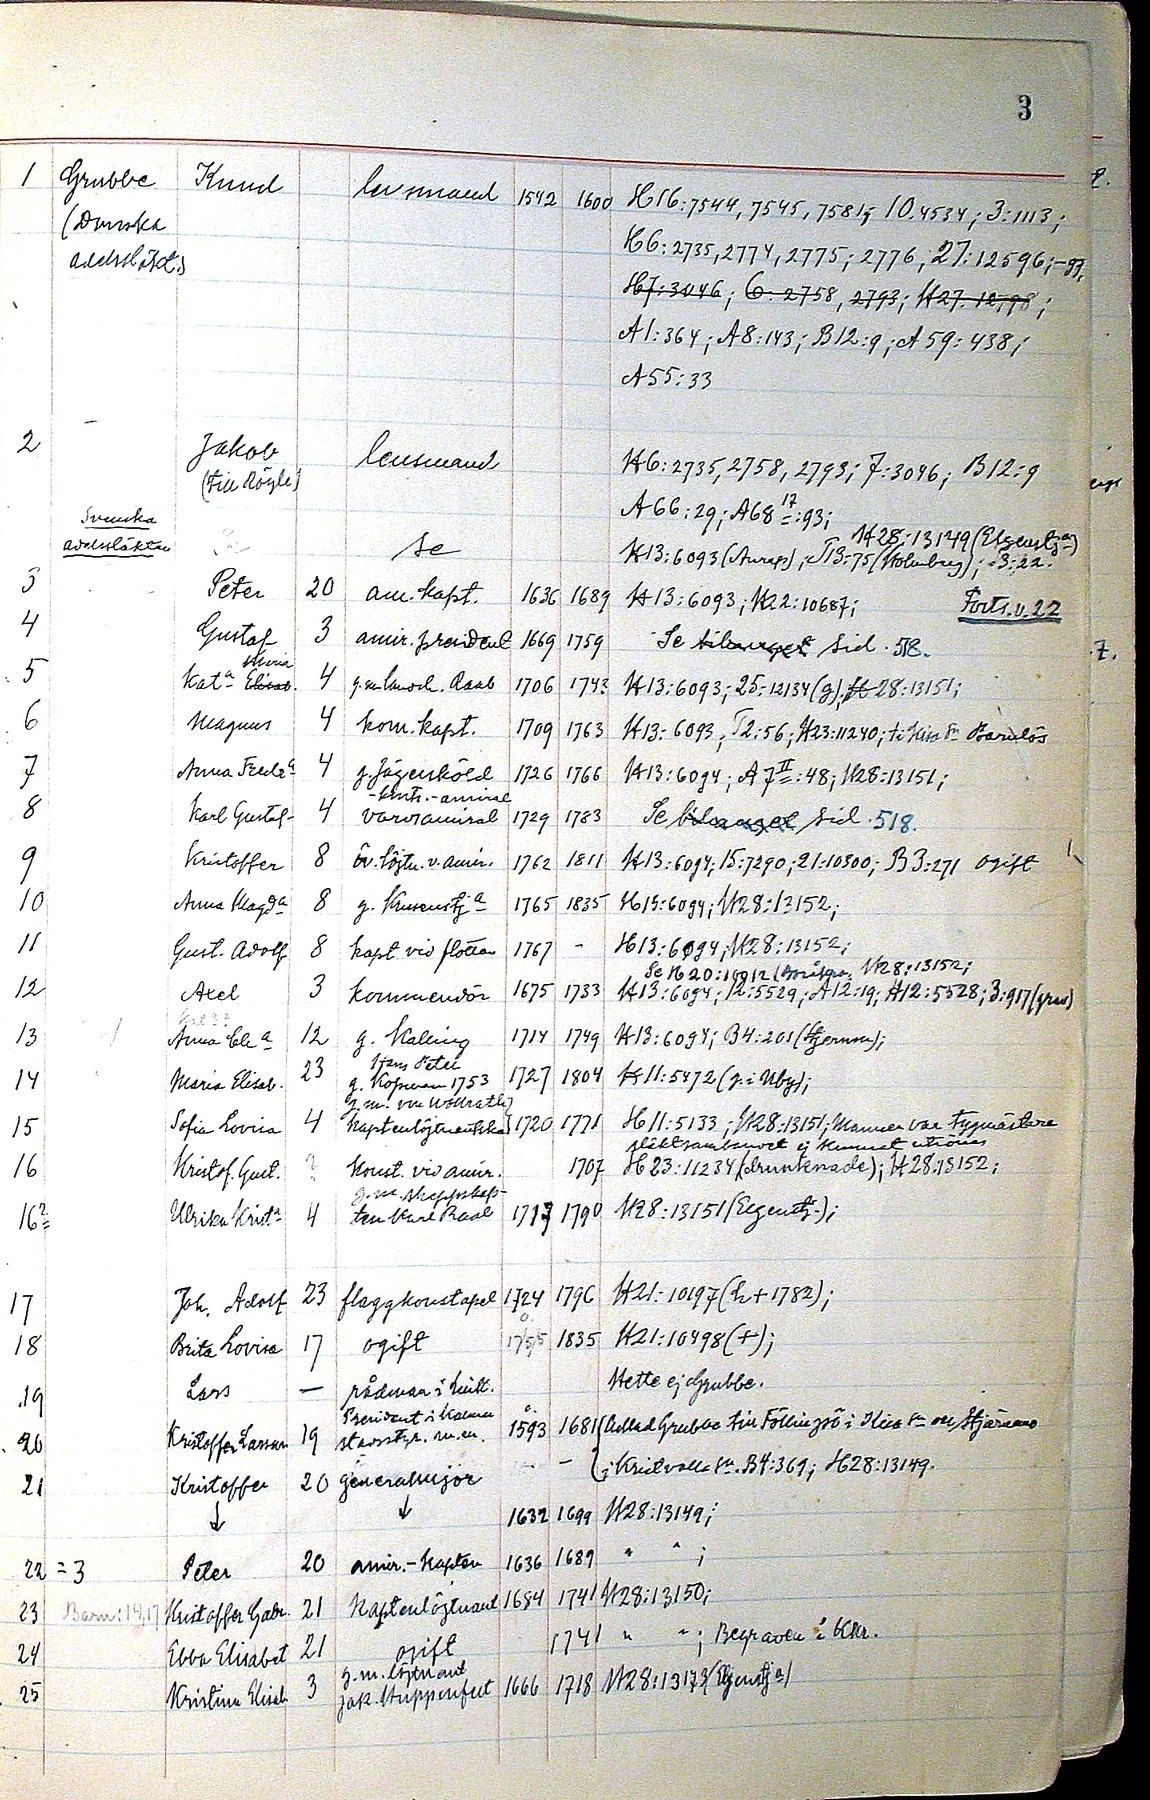 3
1 Grubbe Knud lensmand 1542 1600 H16:7544, 7545, 7581; 10.4534; 3:1113;
(Danska H6:2735, 2774, 2775; 2776, 27:12596;
adelsläkt.) H7:3046; 6:2758, 2793; H27.12,98;
A1:364; A8:143; B12:9; A59:438;
A55:33
2 Jakob lensmand H6:2735, 2758, 2793; 7:3046; B12:9
(till Rögle) A66:29; A68 17:93;
Svenska H28:13149 (Elgenstj:a)
adelssläkten se H13:6093 (Anrep); T13:75 (Holmberg); 3:22.
3 Peter 20 am. kapt. 1636 1689 H13:6093; H22:10687; Forts. n. 22
4 Gustaf 3 amir. president 1669 1759 Se bihanget sid. 518.
Maria
5 Kat:a Elisab. 4 Raab 1706 1743 H13:6093; 25:12134 (g); H28:13151;
6 Magnus 4 kom. kapt. 1709 1763 H13:6093; T2:56; H23:11240; Barnlös
7 Anna Fred:a 4 g. Jägersköld 1726 1766 H13:6094; A7 II:48; H28:13151;
-konts.-amiral
8 Karl Gustaf 4 varvsamiral 1729 1783 Se bihanget sid. 518.
9 Kristoffer 8 öv. löjtn. v. amir. 1762 1811 H13:6094; 15:7290; 21:10300; B3:271 ogift
10 Anna Magd:a 8 g. 1765 1835 H13:6094; H28:13152;
11 Gust. Adolf 8 kapt vid flottan 1767 - H13:6094; H28:13152;
Se H20: H28:13152;
12 Axel 3 kommendör 1675 1733 H13:6094; 12:5529; A12:19; H12:5528; 3:917 (grav)
13 Anna Ele:a 12 g. Kaling 1714 1749 H13:6094; B4:201 (Stjernm);
Hans Peter
14 Maria Elisab. 23 g. 1753 1727 1804 H11:5472 (g. i Uby);
g. m. von Wollrath
15 Sofia Lovisa 4 Kaptenlöjtnantska 1720 1771 H11:5133; H28:13151; Mannen var Tygmästare
släktsambandet ej kunnat utrönas
16 Kristof. Gust. ? konst. vid amir. 1707 H23:11234 (drunknade); H28.13152;
g. m. skeppskap-
16½ Ulrika Krist:a 4 ten Karl Raab 1717 1790 H28:13151 (Elgenstj.);
17 Joh. Adolf 23 flaggkonstapel 1724 1796 H21:10197 (h + 1782);
18 Brita Lovisa 17 ogift 1755 1835 H21:10498 (+);
19 Lars — rådman i Hette ej Grubbe.
President i Kalmar
20 Kristoffer Larsson 19 m.m. 1593 1681 Adlad Grubbe till Föllingsö i Kisa sn
i Kristvalla sn. B4:369; H28:13149.
21 Kristoffer 20 generalmajor — -
↓ ↓ 1632 1699 H28:13149;
22 = 3 Peter 20 amir.-kapten 1636 1689 " " ;
23 Barn: 14, 17 Kristoffer Gabr. 21 Kaptenlöjtnant 1684 1741 H28:13150;
24 Ebba Elisabet 21 ogift 1741 " " ; Begraven i Kkr.
g. m. löjtnant
25 Kristina Elisab. 3 Jak. 1666 1718 H28:13173 (Elgenstj:a)